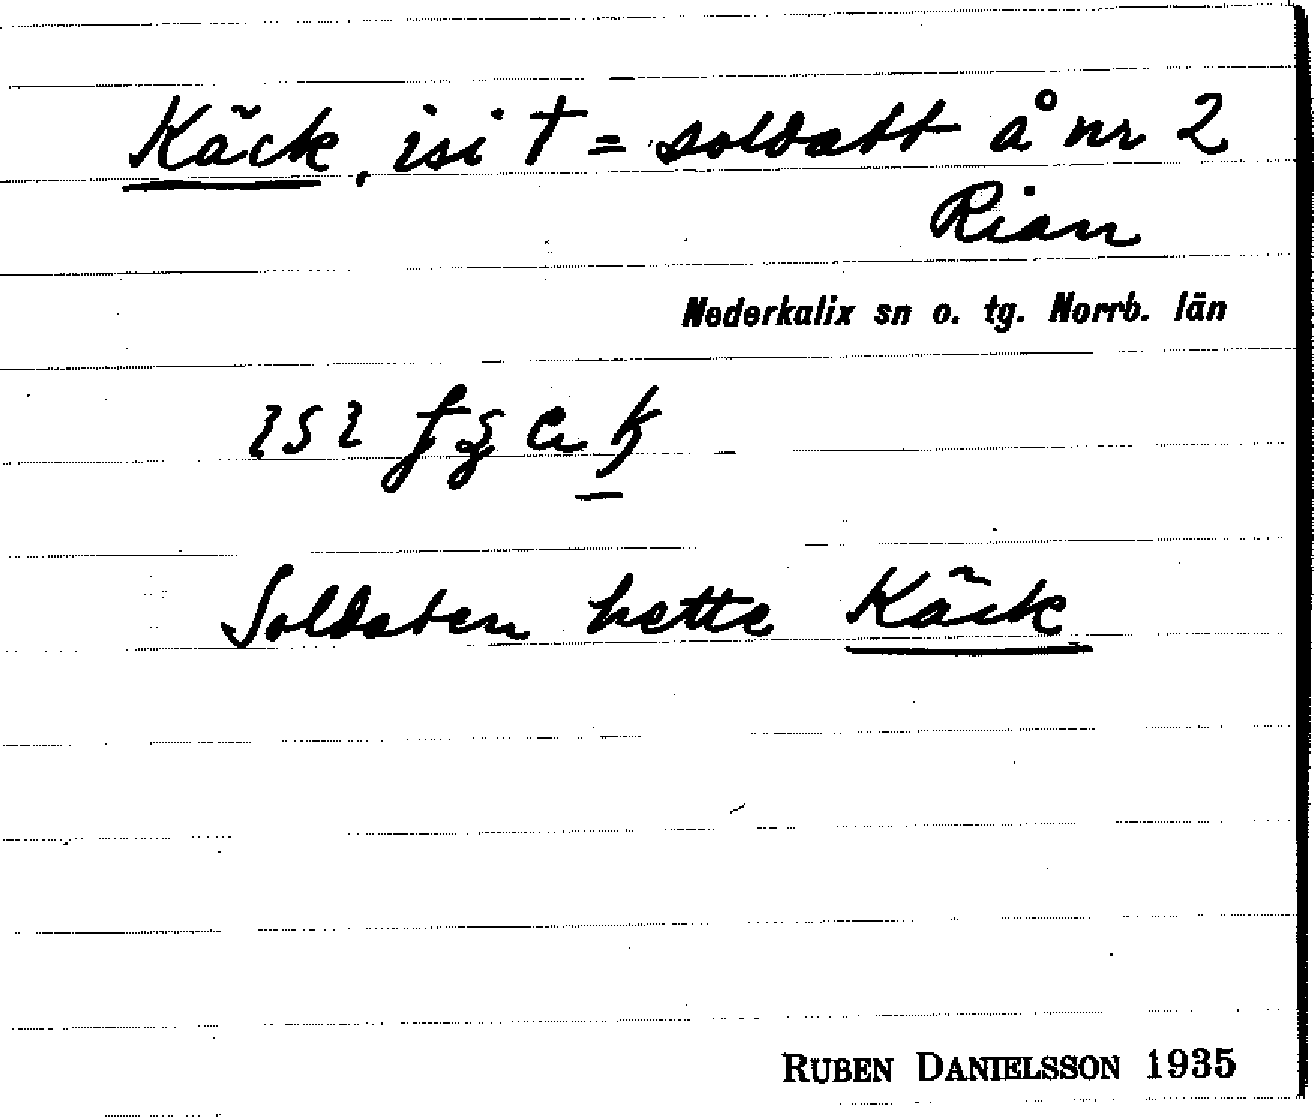 Käck, isi † = soldatt å nr 2
Rian
Nederkalix sn o. tg. Norrb. län
Soldaten hette Käck
RUBEN DANIELSSON 1935